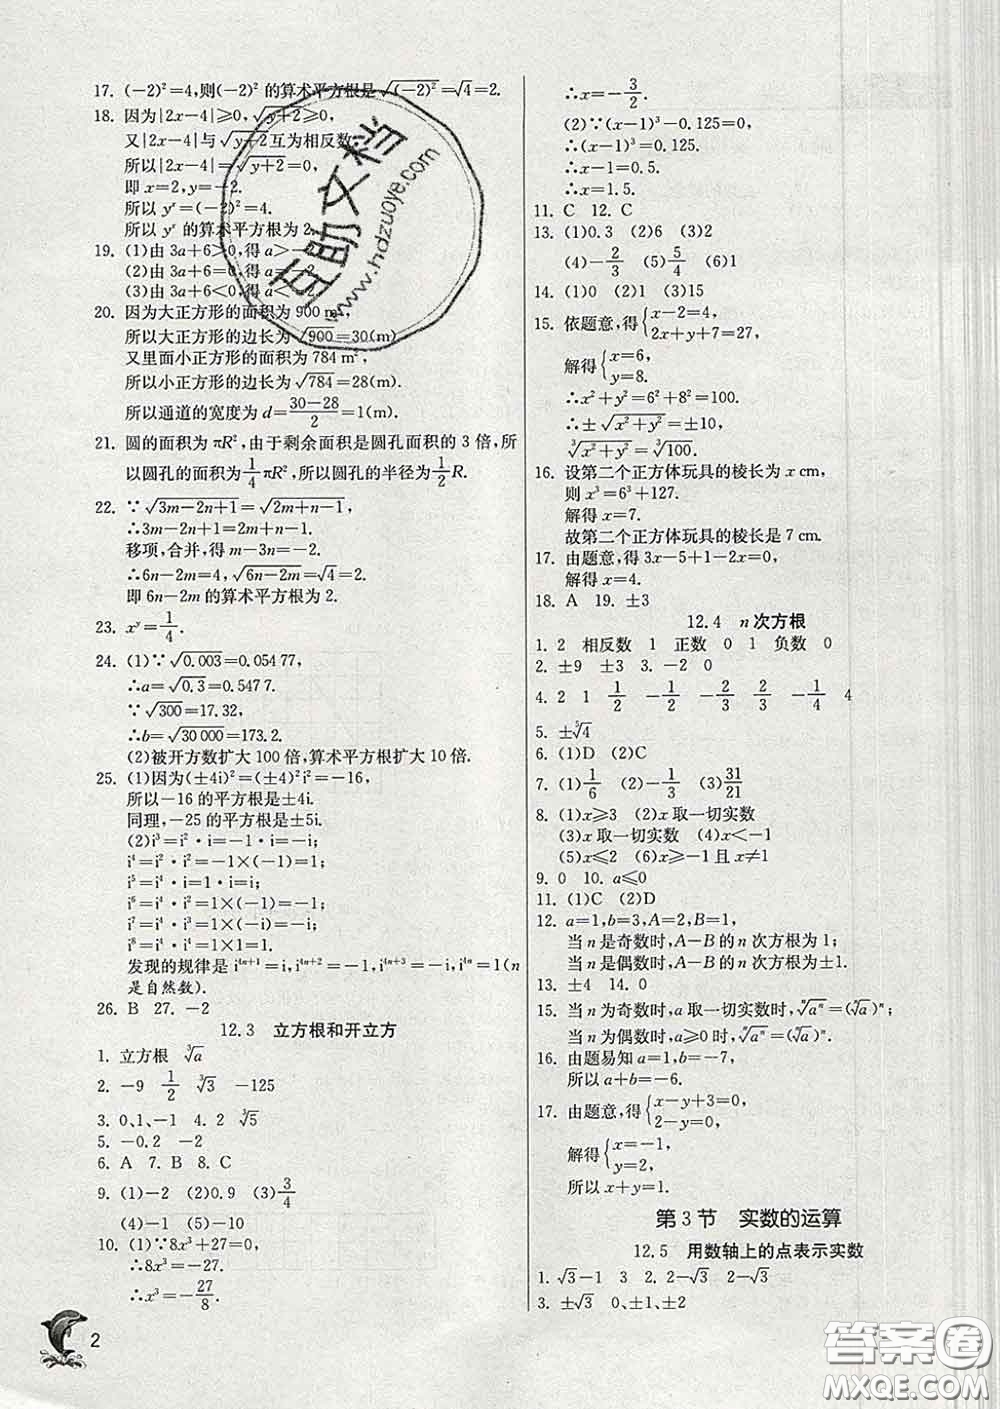 17. (−2)²=4,则(−2)² 的算术平方根是√(−2)²=√4=2.
18. 因为|2x−4|≥0,√y+2≥0,
又|2x−4|与√y+2互为相反数,
所以|2x−4|=√y+2=0,
即 x=2,y=−2.
所以 yˣ=(−2)²=4.
所以 yˣ 的算术平方根为 2.
19. (1)由 3a+6>0,得 a>−2.
(2)由 3a+6=0,得 a=−2.
(3)由 3a+6<0,得 a<−2.
20. 因为大正方形的面积为 900 m²,
所以大正方形的边长为√900=30(m).
又里面小正方形的面积为 784 m²,
所以小正方形的边长为√784=28(m).
所以通道的宽度为 d=(30−28)/2=1(m).
21. 圆的面积为 πR²,由于剩余面积是圆孔面积的 3 倍,所
以圆孔的面积为1/4πR²,所以圆孔的半径为1/2R.
22. ∵√3m−2n+1=√2m+n−1,
∴3m−2n+1=2m+n−1.
移项,合并,得 m−3n=−2.
∴6n−2m=4,√6n−2m=√4=2.
即 6n−2m 的算术平方根为 2.
23. xʸ=1/4.
24. (1)∵√0.003=0.054 77,
∴a=√0.3=0.547 7.
∵√300=17.32,
∴b=√30 000=173.2.
(2)被开方数扩大 100 倍,算术平方根扩大 10 倍.
25. (1)因为(±4i)²=(±4)²i²=−16,
所以−16 的平方根是±4i.
同理,−25 的平方根是±5i.
(2)i³=i²·i=−1·i=−i;
i⁴=i²·i²=−1×(−1)=1;
i⁵=i⁴·i=1·i=i;
i⁶=i⁴·i²=1×(−1)=−1;
i⁷=i⁴·i³=1×(−i)=−i;
i⁸=i⁴·i⁴=1×1=1.
发现的规律是 i⁴ⁿ⁺¹=i,i⁴ⁿ⁺²=−1,i⁴ⁿ⁺³=−i,i⁴ⁿ=1(n
是自然数).
26. B 27. −2
12.3 立方根和开立方
1. 立方根 ∛a
2. −9 1/2 ∛3 −125
3. 0、1、−1 4. 2 ∛5
5. −0.2 −2
6. A 7. B 8. C
9. (1)−2 (2)0.9 (3)3/4
(4)−1 (5)−10
10. (1)∵8x³+27=0,
∴8x³=−27.
∴x³=−27/8.
∴x=−3/2.
(2)∵(x−1)³−0.125=0,
∴(x−1)³=0.125.
∴x−1=0.5.
∴x=1.5.
11. C 12. C
13. (1)0.3 (2)6 (3)2
(4)−2/3 (5)5/4 (6)1
14. (1)0 (2)1 (3)15
15. 依题意,得{x−2=4,
2x+y+7=27,
解得{x=6,
y=8.
∴x²+y²=6²+8²=100.
∴±√x²+y²=±10,
∛x²+y²=∛100.
16. 设第二个正方体玩具的棱长为 x cm,
则 x³=6³+127.
解得 x=7.
故第二个正方体玩具的棱长是 7 cm.
17. 由题意,得 3x−5+1−2x=0,
解得 x=4.
18. A 19. ±3
12.4 n 次方根
1. 2 相反数 1 正数 0 1 负数 0
2. ±9 ±3 3. −2 0
4. 2 1 1/2 −1/2 −2/3 2/3 −1/4 4
5. ±⁵√4
6. (1)D (2)C
7. (1)1/6 (2)−1/3 (3)31/21
8. (1)x≥3 (2)x 取一切实数
(3)x 取一切实数 (4)x<−1
(5)x≤2 (6)x≥−1 且 x≠1
9. 0 10. a≤0
11. (1)C (2)D
12. a=1,b=3,A=2,B=1,
当 n 是奇数时,A−B 的 n 次方根为 1;
当 n 是偶数时,A−B 的 n 次方根为±1.
13. ±4 14. 0
15. 当 n 为奇数时,a 取一切实数时,ⁿ√aⁿ=(ⁿ√a)ⁿ;
当 n 为偶数时,a≥0 时,ⁿ√aⁿ=(ⁿ√a)ⁿ.
16. 由题易知 a=1,b=−7,
所以 a+b=−6.
17. 由题意,得{x−y+3=0,
2−y=0,
解得{x=−1,
y=2,
所以 x+y=1.
第 3 节 实数的运算
12.5 用数轴上的点表示实数
1. √3−1 3 2. 2−√3 2−√3
3. ±√3 0、±1、±2
2
互助文档
www.hdzuoye.com
答案圈
MXQE.COM